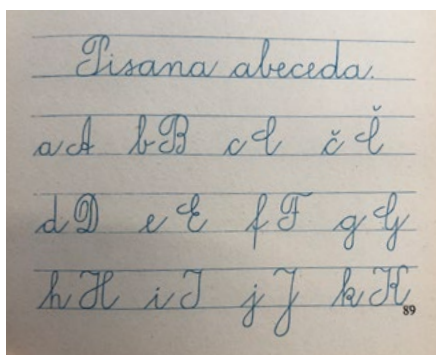 Pisana abeceda.
a A b B c C č Č
d D e E f F g G
h H i I j J k K
89